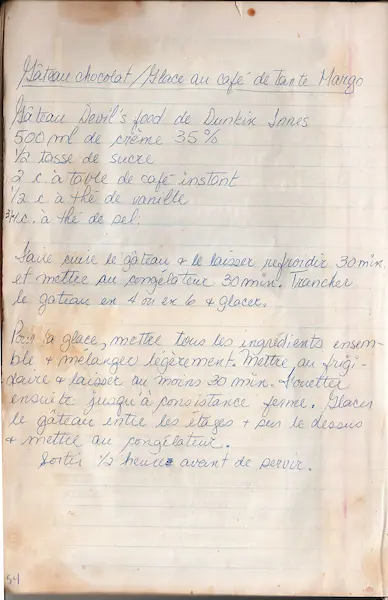 Gâteau chocolat/Glace au café de tante Margo
Gâteau Devil's food de Dunkin Innes
500 ml de crème 35%
1/2 tasse de sucre
2 c. à table de café instant
1/2 c à thé de vanille
3/4 c. à thé de sel.
Faire cuire le gâteau & le laisser refroidir 30 min.
et mettre au congélateur 30 min. Trancher
le gâteau en 4 ou en 6 & glacer.
Pour la glace, mettre tous les ingrédients ensem-
ble & mélanger légèrement. Mettre au frigi-
daire & laisser au moins 30 min. Fouetter
ensuite jusqu'à consistance ferme. Glacer
le gâteau entre les étages & sur le dessus
& mettre au congélateur.
Sortir 1/2 heure avant de servir.
54